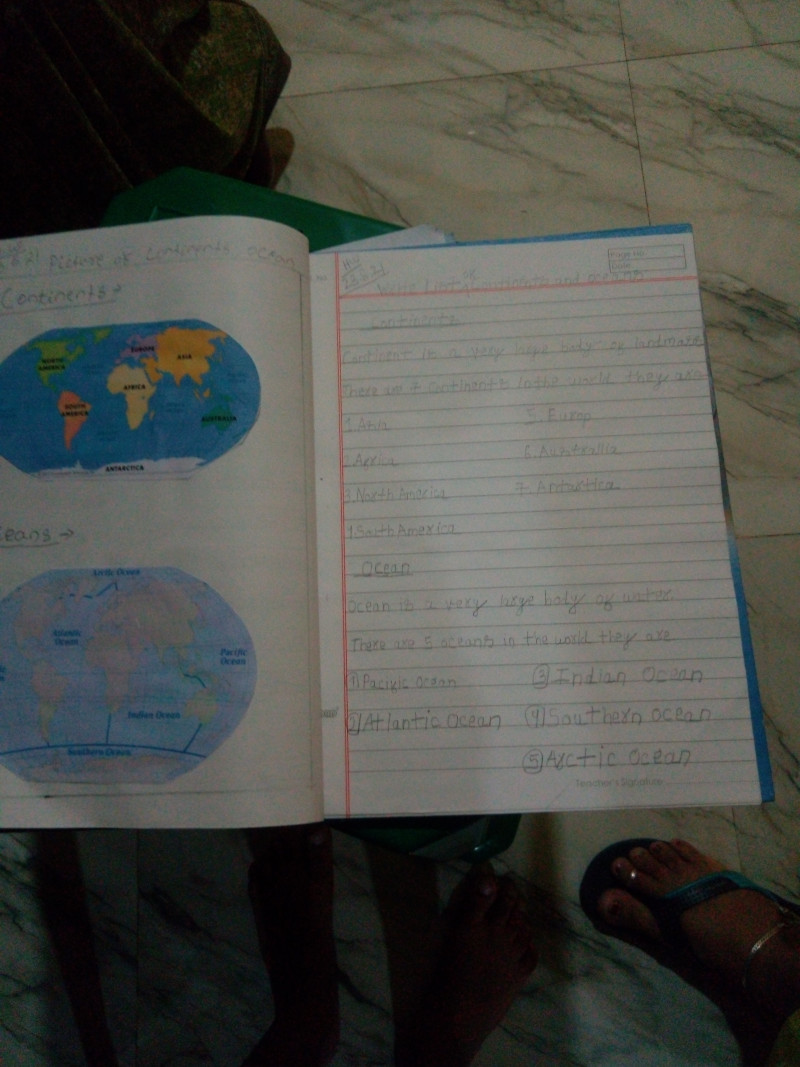 Picture of Continents, Ocean
Continents →
NORTH
AMERICA
EUROPE
ASIA
AFRICA
SOUTH
AMERICA
AUSTRALIA
ANTARCTICA
eans →
Arctic Ocean
Atlantic
Ocean
Pacific
Ocean
Indian Ocean
Southern Ocean
H.W
Page No.
Date
Write List of continents and oceans
Continents
Continent is a very huge body of landmass
There are 7 continents in the world they are
1. Asia
5. Europ
2. Africa
6. Australia
3. North America
7. Antarctica
4. South America
Ocean
Ocean is a very large body of water
There are 5 oceans in the world they are
1) Pacific Ocean
3) Indian Ocean
2) Atlantic Ocean
4) Southern Ocean
5) Arctic Ocean
Teacher's Signature